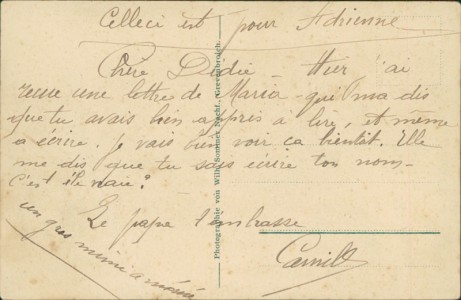 Celleci est pour Adrienne
Chère Dédie - Hier j'ai
reçue une lettre de Maria qui ma dis
que tu avais bien appris a lire, et meme
a écrire. je vais bien voir ça bientôt. Elle
me dis que tu sais écrire ton nom -
C'est il vraie?
Le papa t'embrasse
Camille
un gros mimi a mémé
Photographie von Wilh. Sommer Nachf., Grevenbroich.